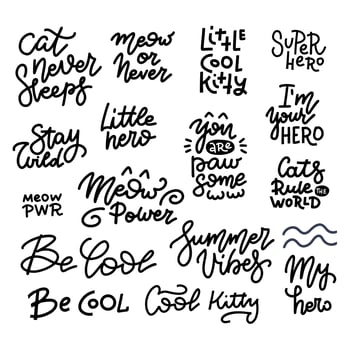 Cat
never
Sleeps
Meow
or
Never
Little
COOL
Kitty
SUPER
HERO
Stay
Wild
Little
hero
You
ARE
paw
some
I'm
your
HERO
MEOW
PWR
Meow
Power
Cats
RULE THE
WORLD
Be Cool
Summer
Vibes
My
hero
Be COOL
Cool Kitty